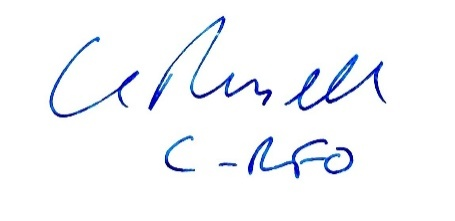 C Russell
C-RFO